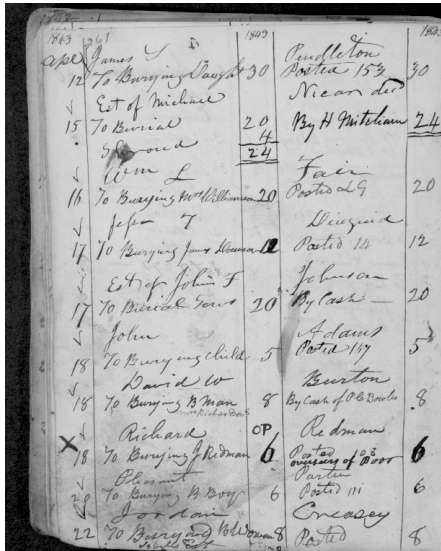 1843 1843 1843
Apl James S Pendleton
12 To Burying Daught 30 Posted 153 30
Est of Michael Nicar decd
15 To Burial 20 By H Mitcham 24
Shroud 4
24
Wm L Fair
16 To Burying Mrs Williamson 20 Posted 29 20
Jesse T
17 To Burying James 12 Posted 14 12
Est of John F Johnson
17 To Burial Servs 20 By Cash 20
John Adams
18 To Burying child 5 Posted 147 5
David W Burton
18 To Burying B Man 8 By Cash of P C Bowles 8
Richard OP Redman
X 18 To Burying J Redman 6 Posted 108 6
overseers of Poor
Pleasant Partin
20 To Burying B Boy 6 Posted 111 6
Jordan Creasey
22 To Burying B Woman 8 Posted 8